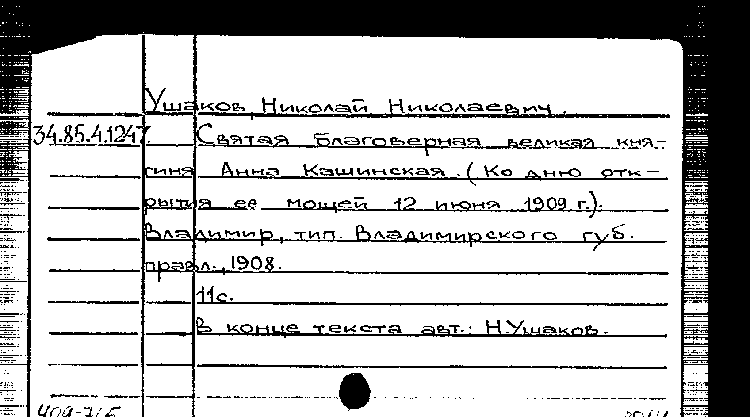 Ушаков, Николай Николаевич.
34.85.4.1247. Святая благоверная великая кня-
гиня Анна Кашинская. (Ко дню отк-
рытия ее мощей 12 июня 1909 г.).
Владимир, тип. Владимирского губ.
правл., 1908.
11с.
В конце текста авт.: Н.Ушаков.